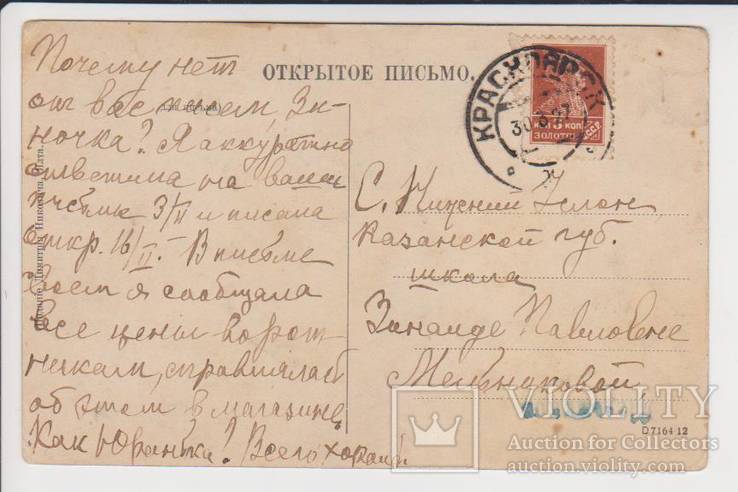 ОТКРЫТОЕ ПИСЬМО.
Почему нет
от вас писем, Зи-
ночка? Я аккуратно
ответила на ваши
письма 3/II и писала
откр. 16/II. В письме
всем я сообщала
все цены
об этом в магазине.
Как Всего хорош.
КРАСНОЯРСК
30.3.27
КОП
ЗОЛОТОМ
С. Нижний Услон
Казанской губ.
школа
Зинаиде Павловне
Мельниковой
D7164 12
VIOLITY
Auction for Collectors
auction.violity.com